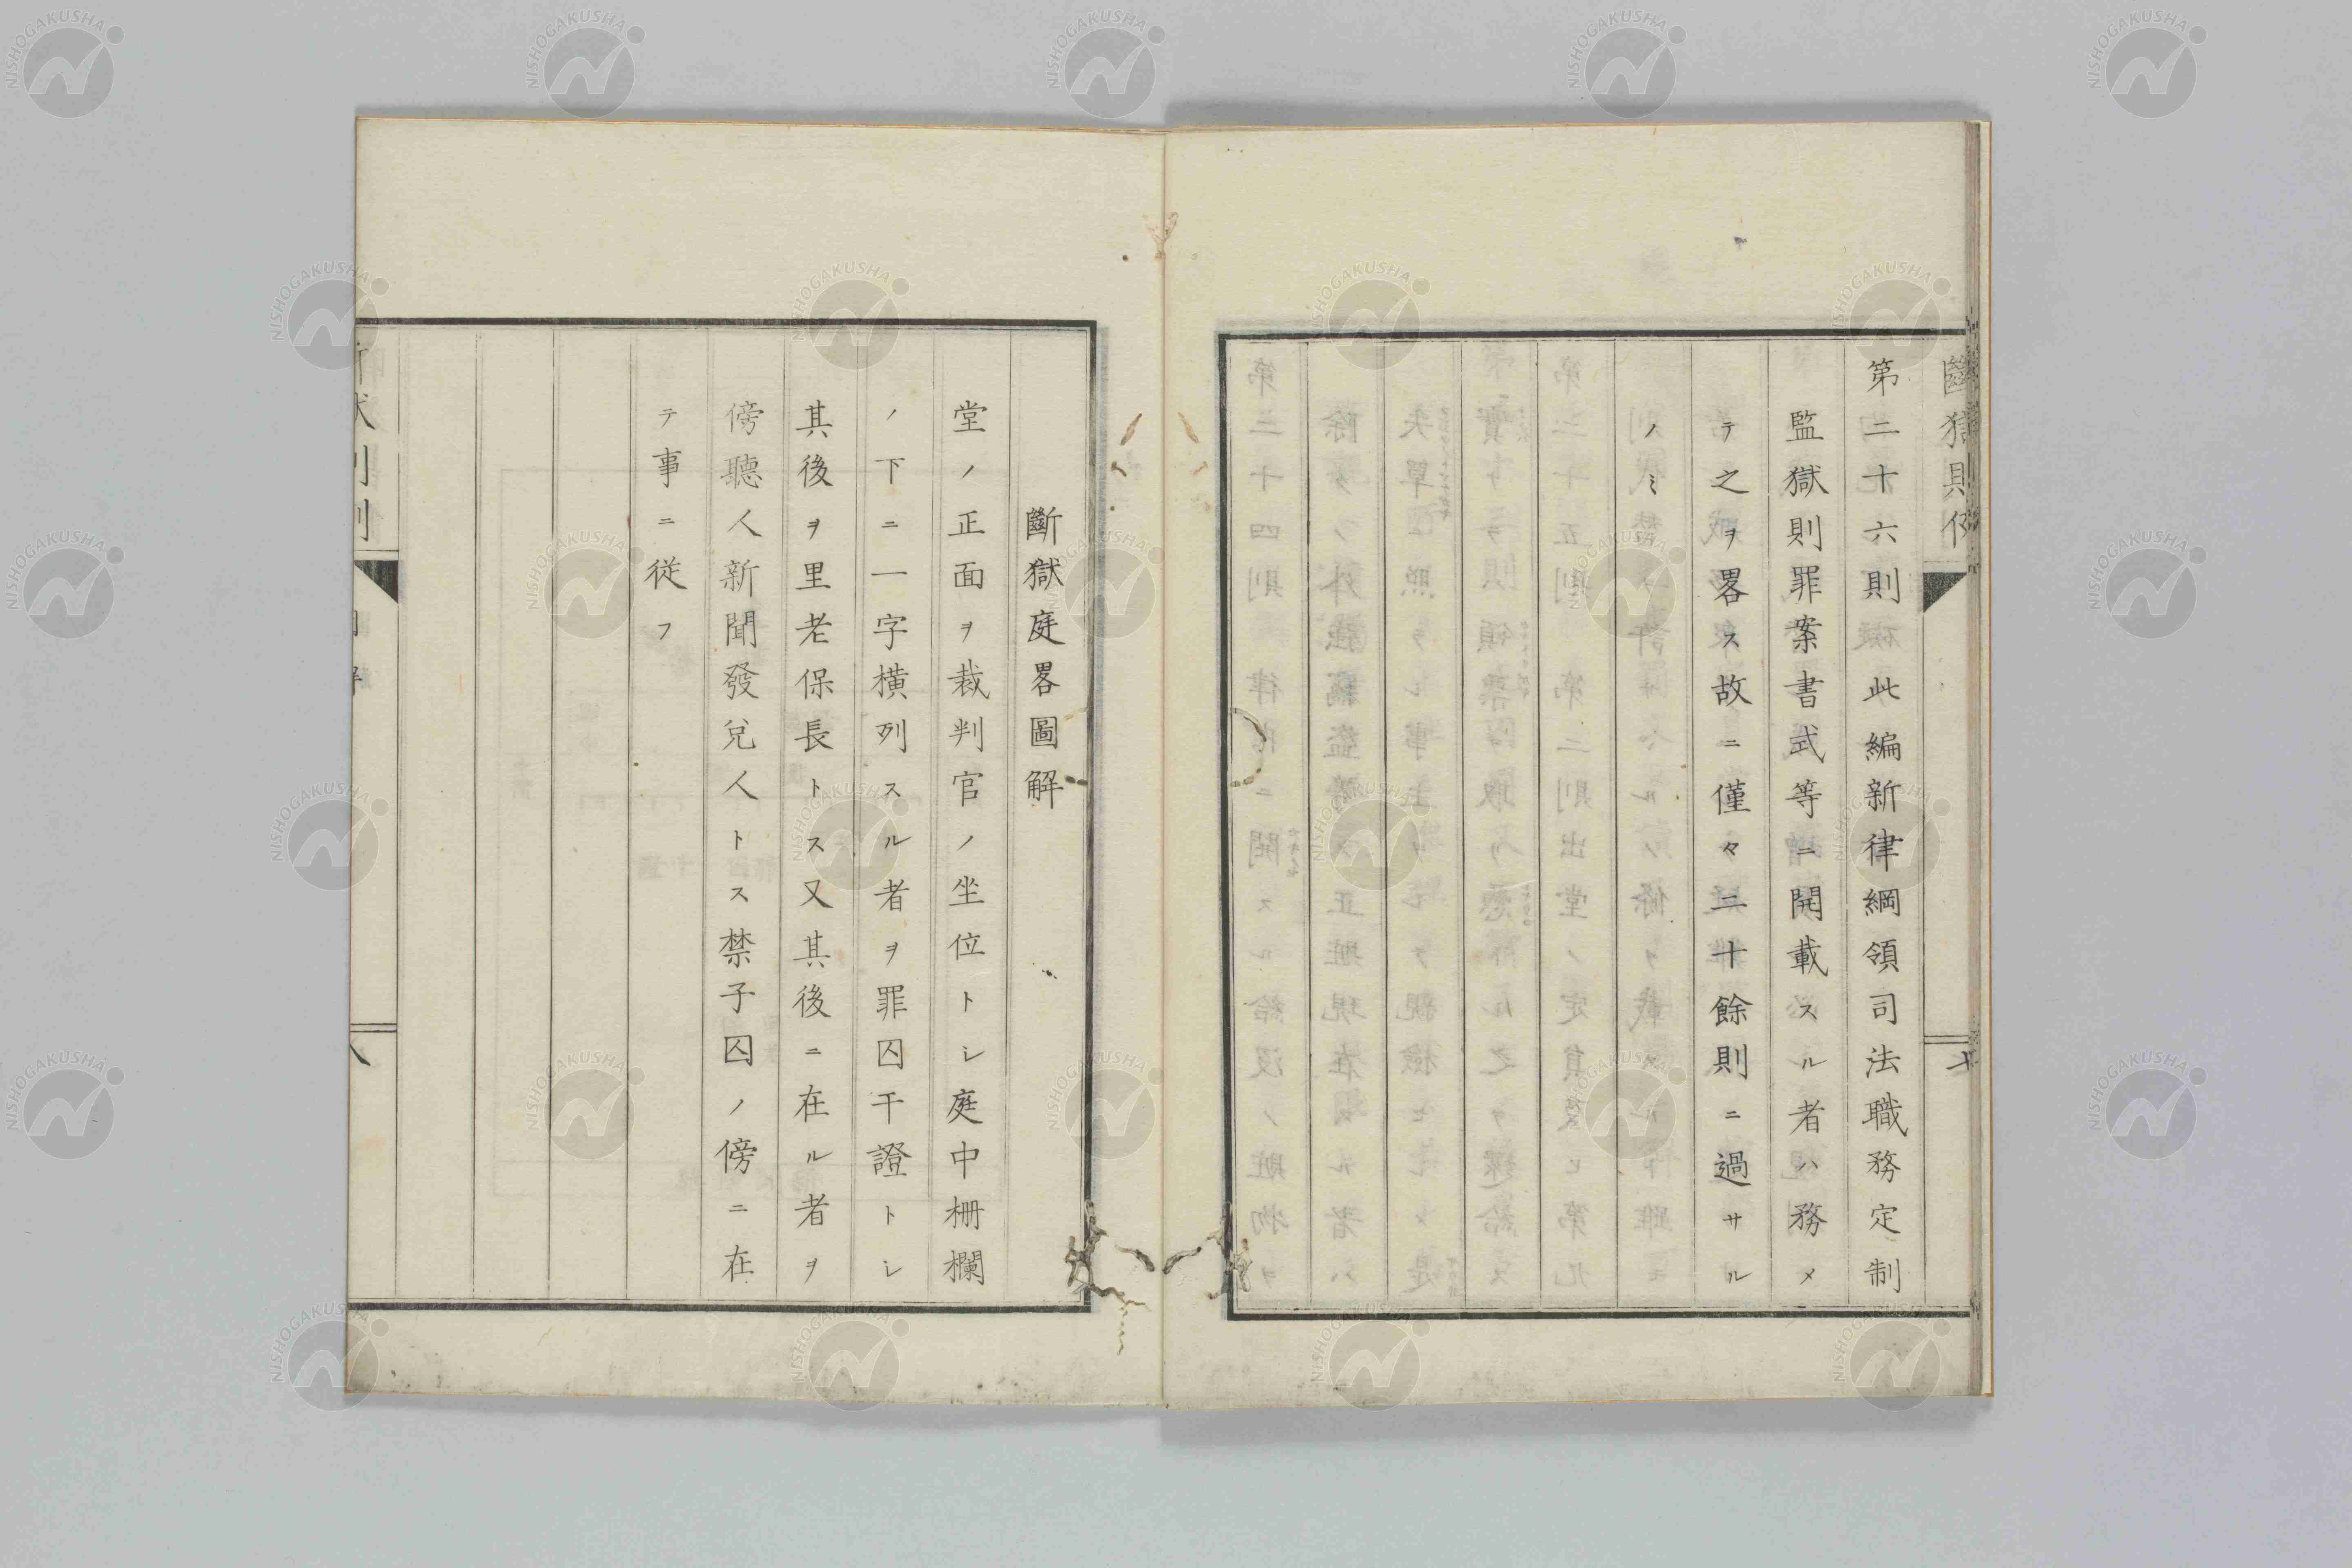 斷獄則例
七
第二十六則此編新律綱領司法職務定制
監獄則罪案書式等ニ開載スル者ハ務メ
テ之ヲ畧ス故ニ僅々二十餘則ニ過サル
ノミ
斷獄庭畧圖解
堂ノ正面ヲ裁判官ノ坐位トシ庭中柵欄
ノ下ニ一字横列スル者ヲ罪囚干證トシ
其後ヲ里老保長トス又其後ニ在ル者ヲ
傍聽人新聞發兌人トス禁子囚ノ傍ニ在
テ事ニ従フ
NISHOGAKUSHA